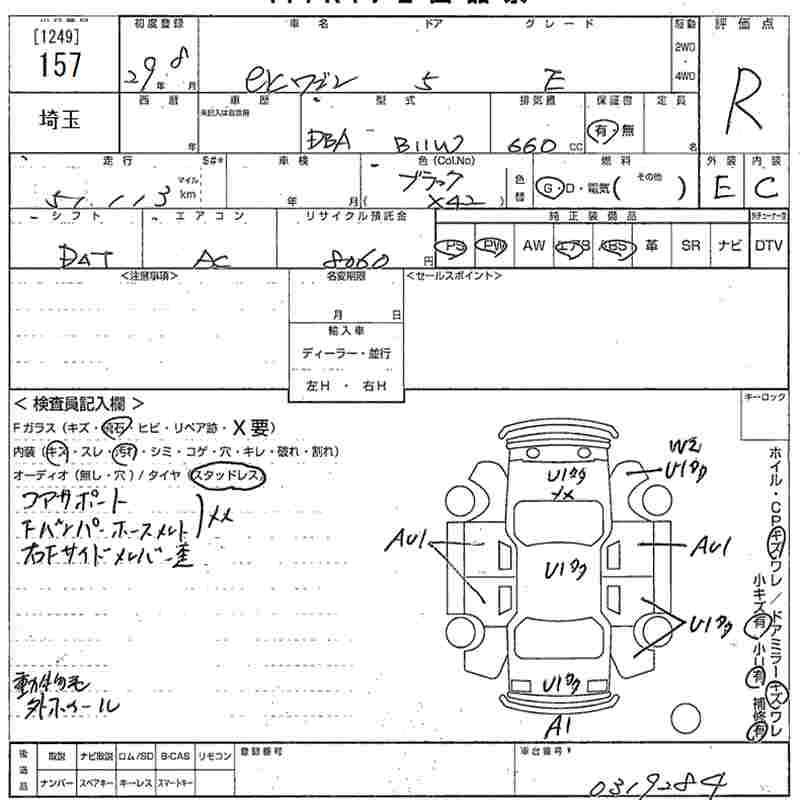 [1249]
157
埼玉
初度登録
29年 8月
車名 ドア グレード
ekワゴン 5 E
駆動
2WD
・
4WD
評価点
R
西暦
年
車歴
未記入は自家用
型式
DBA B11W
排気量
660 cc
保証書
有・無
定員
名
走行 S#*
51,113 マイル km
車検
年 月
色(Col.No)
ブラック
( X42 )
色替
燃料
G・D・電気( その他 )
外装 内装
E C
シフト
DAT
エアコン
AC
リサイクル預託金
8060 円
純正装備品
PS PW AW エアB ABS 革 SR ナビ DTV
<注意事項>
名変期限
月 日
輸入車
ディーラー・並行
左H ・ 右H
<セールスポイント>
< 検査員記入欄 >
キーロック
Fガラス(キズ・飛石・ヒビ・リペア跡・X要)
内装(キズ・スレ・汚れ・シミ・コゲ・穴・キレ・破れ・割れ)
オーディオ(無し・穴)/タイヤ(スタッドレス)
コアサポート
Fバンパーホースメント
XX
右Fサイドメンバー歪
動物毛
外ホイール
U1タク
XX
W2
U1タク
AU1
U1タク
AU1
U1タク
U1タク
A1
ホイル・CPキズワレ/ドアミラーキズワレ
小キズ有 小U有 補修有
後送品
取説 ナビ取説 ロム/SD B-CAS リモコン
ナンバー スペアキー キーレス スマートキー
登録番号
車台番号
0319284